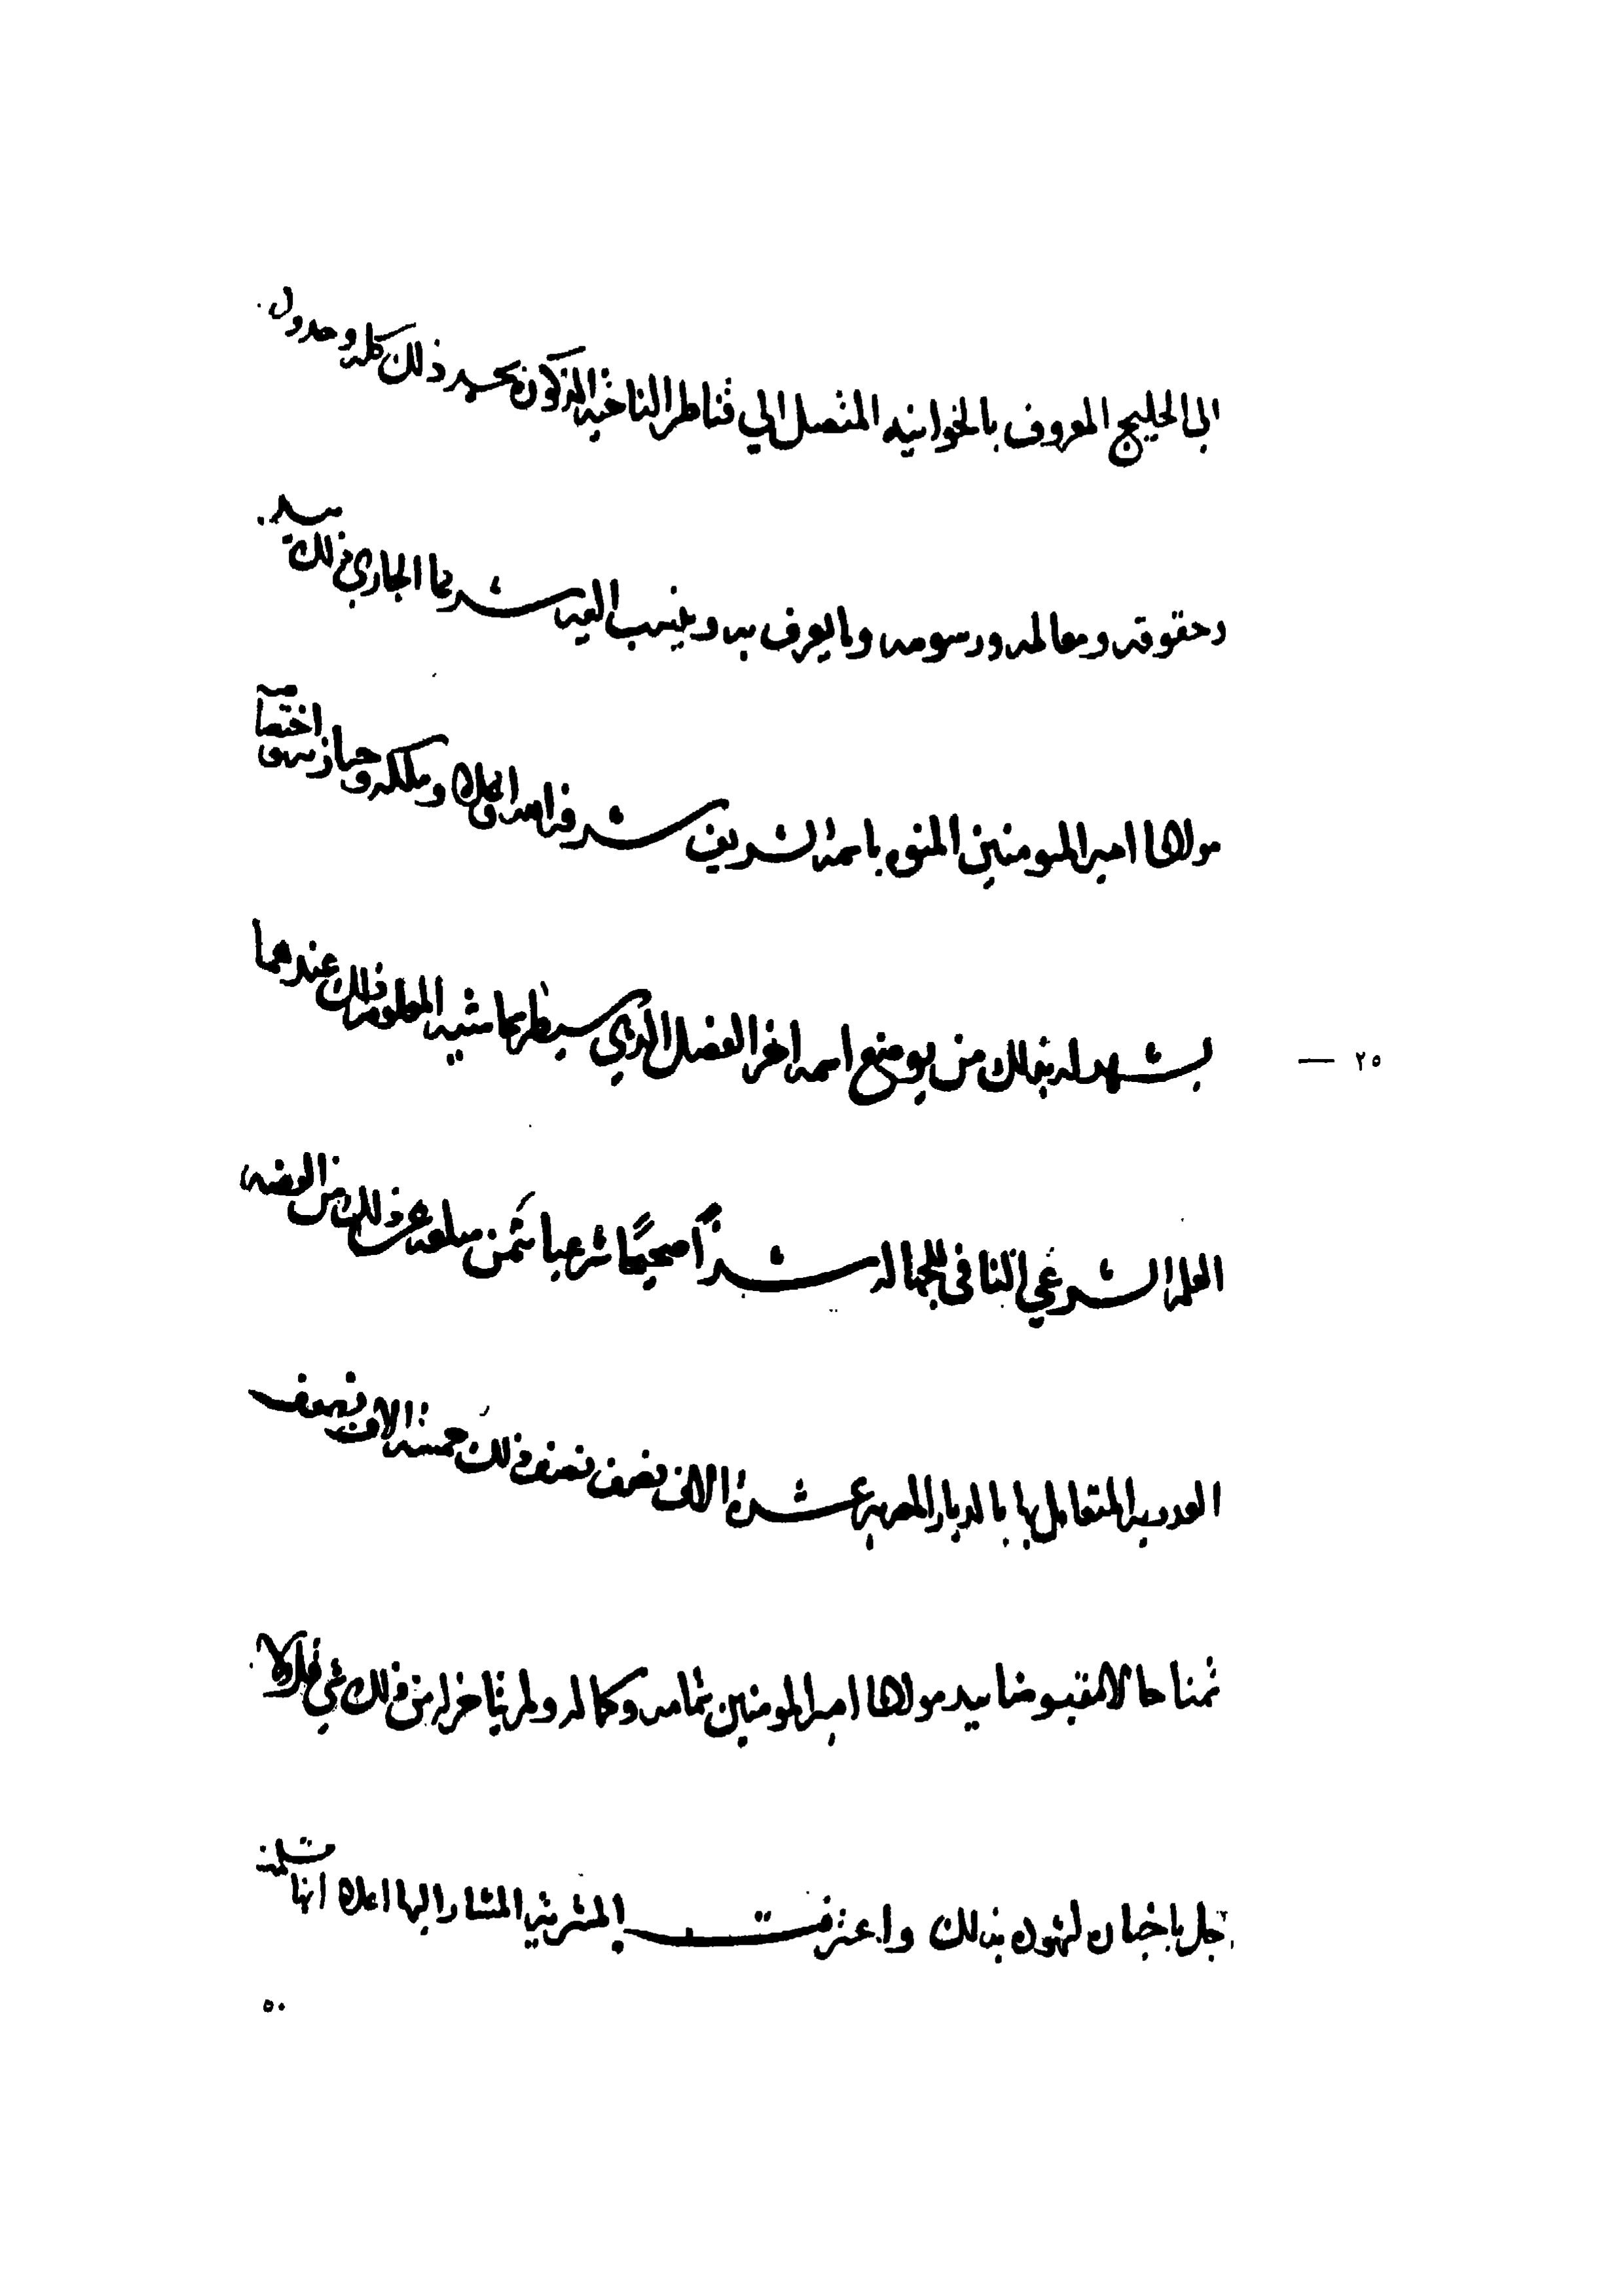 الى الخليج المعروف بالخوانيه المتصل الي قناطر الناحيه المذكوره بحميع ذلك كله وحدوده
وحقوقه ومعالمه ورسومه وما يعرف به وينسب اليه شرعا الجاري ذلك بيد
مولانا امير المومنين المنوه باسمه الشريف شرفه الله اعلاه وملكه وحيازته واختصاصه
يشهد له بذلك من يوضع اسمه اخر الفصل الذي سيسطر بهامشيه المعلوم ذلك عندهما
٢٥ —
العلم الشرعي النافي للجهاله شراً صحيحًا شرعيا بثمن مبلغه عن ذلك من الفضه
العدديه المتعامل بها بالديار المصريه عشرة الاف نصف نصف ذلك خمسة الاف نصف
ثمنا حالا مقبوضا بيد مولانا امير المومنين بتمامه وكماله ولم يتاخر له من ذلك شي قل ولا
جل باخباره لشهوده بذلك واعترفت المشتريه المشار اليها اعلاه انها
٥٠